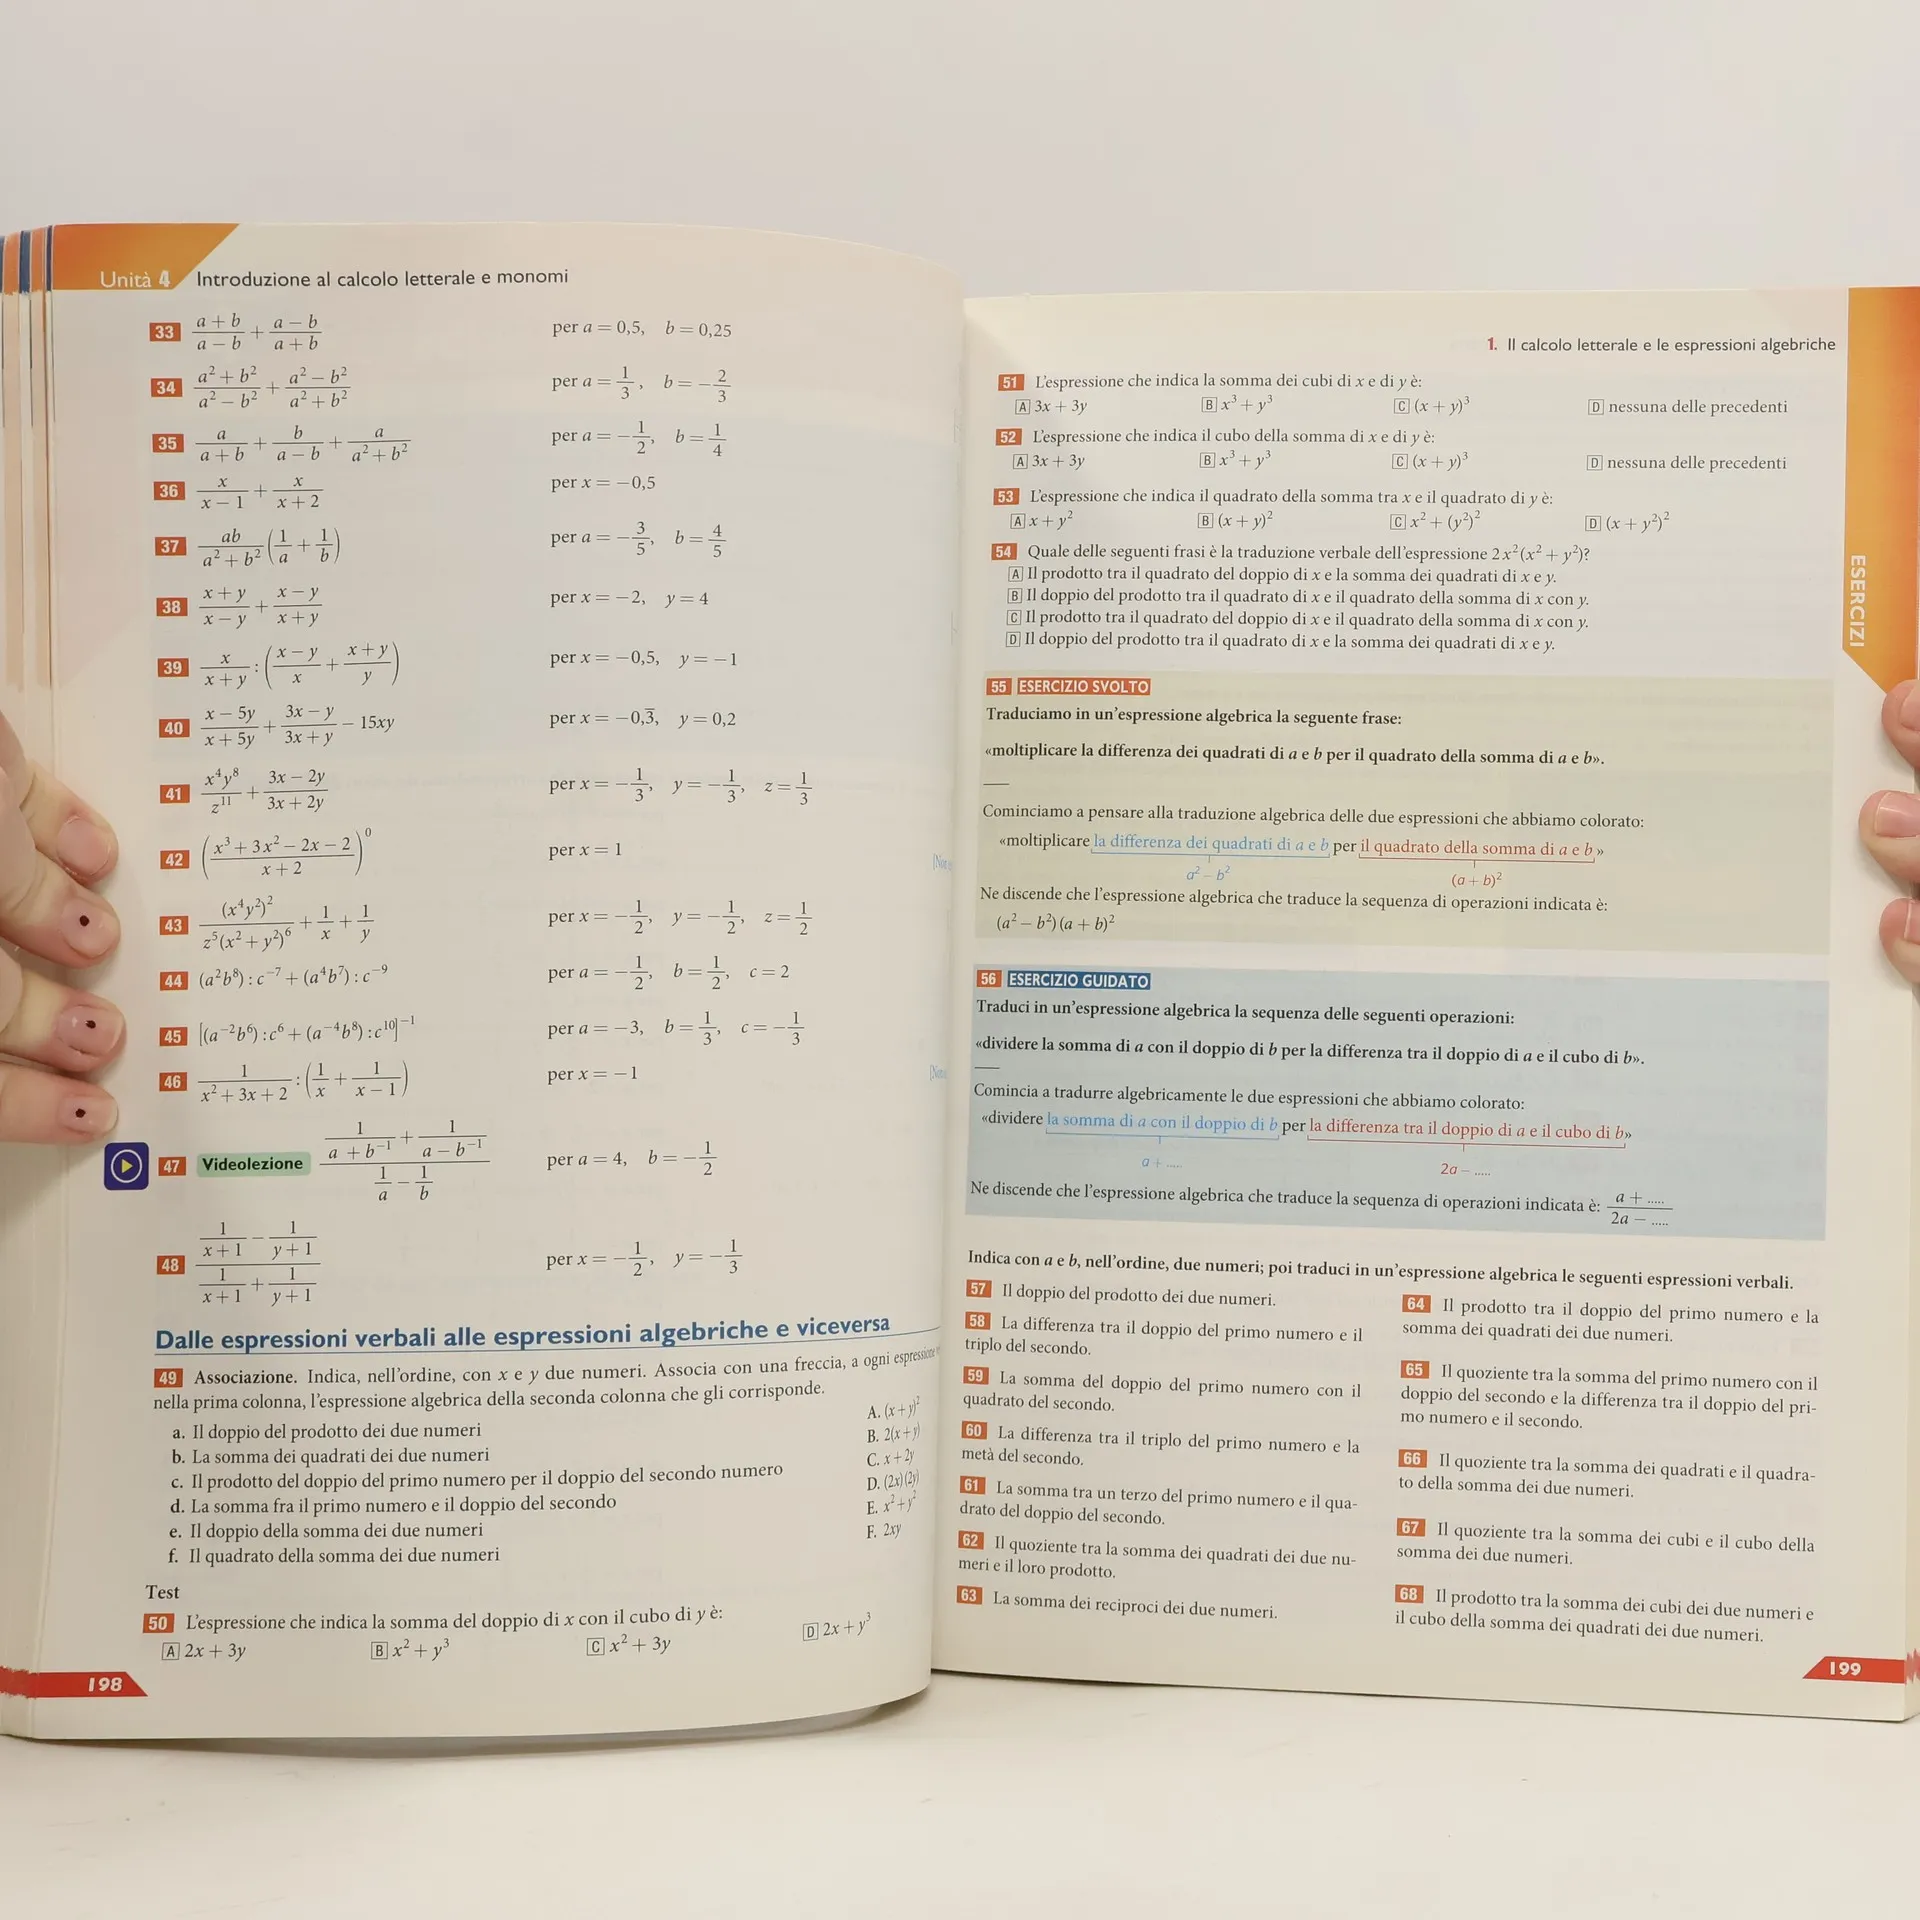 Unità 4 Introduzione al calcolo letterale e monomi
33 \frac{a+b}{a-b} + \frac{a-b}{a+b} per a = 0,5, b = 0,25
34 \frac{a^2+b^2}{a^2-b^2} + \frac{a^2-b^2}{a^2+b^2} per a = \frac{1}{3}, b = -\frac{2}{3}
35 \frac{a}{a+b} + \frac{b}{a-b} + \frac{a}{a^2+b^2} per a = -\frac{1}{2}, b = \frac{1}{4}
36 \frac{x}{x-1} + \frac{x}{x+2} per x = -0,5
37 \frac{ab}{a^2+b^2}(\frac{1}{a} + \frac{1}{b}) per a = -\frac{3}{5}, b = \frac{4}{5}
38 \frac{x+y}{x-y} + \frac{x-y}{x+y} per x = -2, y = 4
39 \frac{x}{x+y} : (\frac{x-y}{x} + \frac{x+y}{y}) per x = -0,5, y = -1
40 \frac{x-5y}{x+5y} + \frac{3x-y}{3x+y} - 15xy per x = -0,\overline{3}, y = 0,2
41 \frac{x^4y^8}{z^{11}} + \frac{3x-2y}{3x+2y} per x = -\frac{1}{3}, y = -\frac{1}{3}, z = \frac{1}{3}
42 (\frac{x^3+3x^2-2x-2}{x+2})^0 per x = 1
43 \frac{(x^4y^2)^2}{z^5(x^2+y^2)^6} + \frac{1}{x} + \frac{1}{y} per x = -\frac{1}{2}, y = -\frac{1}{2}, z = \frac{1}{2}
44 (a^2b^8) : c^{-7} + (a^4b^7) : c^{-9} per a = -\frac{1}{2}, b = \frac{1}{2}, c = 2
45 [(a^{-2}b^6) : c^6 + (a^{-4}b^8) : c^{10}]^{-1} per a = -3, b = \frac{1}{3}, c = -\frac{1}{3}
46 \frac{1}{x^2+3x+2} : (\frac{1}{x} + \frac{1}{x-1}) per x = -1
47 Videolezione \frac{\frac{1}{a+b^{-1}} + \frac{1}{a-b^{-1}}}{\frac{1}{a} - \frac{1}{b}} per a = 4, b = -\frac{1}{2}
48 \frac{\frac{1}{x+1} - \frac{1}{y+1}}{\frac{1}{x+1} + \frac{1}{y+1}} per x = -\frac{1}{2}, y = -\frac{1}{3}
Dalle espressioni verbali alle espressioni algebriche e viceversa
49 Associazione. Indica, nell'ordine, con x e y due numeri. Associa con una freccia, a ogni espressione
nella prima colonna, l'espressione algebrica della seconda colonna che gli corrisponde.
a. Il doppio del prodotto dei due numeri A. (x+y)^2
b. La somma dei quadrati dei due numeri B. 2(x+y)
c. Il prodotto del doppio del primo numero per il doppio del secondo numero C. x+2y
d. La somma fra il primo numero e il doppio del secondo D. (2x)(2y)
e. Il doppio della somma dei due numeri E. x^2+y^2
f. Il quadrato della somma dei due numeri F. 2xy
Test
50 L'espressione che indica la somma del doppio di x con il cubo di y è:
A 2x + 3y B x^2 + y^3 C x^2 + 3y D 2x + y^3
198
1. Il calcolo letterale e le espressioni algebriche
51 L'espressione che indica la somma dei cubi di x e di y è:
A 3x + 3y B x^3 + y^3 C (x + y)^3 D nessuna delle precedenti
52 L'espressione che indica il cubo della somma di x e di y è:
A 3x + 3y B x^3 + y^3 C (x + y)^3 D nessuna delle precedenti
53 L'espressione che indica il quadrato della somma tra x e il quadrato di y è:
A x + y^2 B (x + y)^2 C x^2 + (y^2)^2 D (x + y^2)^2
54 Quale delle seguenti frasi è la traduzione verbale dell'espressione 2x^2(x^2 + y^2)?
A Il prodotto tra il quadrato del doppio di x e la somma dei quadrati di x e y.
B Il doppio del prodotto tra il quadrato di x e il quadrato della somma di x con y.
C Il prodotto tra il quadrato del doppio di x e il quadrato della somma di x con y.
D Il doppio del prodotto tra il quadrato di x e la somma dei quadrati di x e y.
ESERCIZI
55 ESERCIZIO SVOLTO
Traduciamo in un'espressione algebrica la seguente frase:
«moltiplicare la differenza dei quadrati di a e b per il quadrato della somma di a e b».
Cominciamo a pensare alla traduzione algebrica delle due espressioni che abbiamo colorato:
«moltiplicare la differenza dei quadrati di a e b per il quadrato della somma di a e b»
a^2 - b^2 (a + b)^2
Ne discende che l'espressione algebrica che traduce la sequenza di operazioni indicata è:
(a^2 - b^2)(a + b)^2
56 ESERCIZIO GUIDATO
Traduci in un'espressione algebrica la sequenza delle seguenti operazioni:
«dividere la somma di a con il doppio di b per la differenza tra il doppio di a e il cubo di b».
Comincia a tradurre algebricamente le due espressioni che abbiamo colorato:
«dividere la somma di a con il doppio di b per la differenza tra il doppio di a e il cubo di b»
a + ..... 2a - .....
Ne discende che l'espressione algebrica che traduce la sequenza di operazioni indicata è: \frac{a + .....}{2a - .....}
Indica con a e b, nell'ordine, due numeri; poi traduci in un'espressione algebrica le seguenti espressioni verbali.
57 Il doppio del prodotto dei due numeri.
58 La differenza tra il doppio del primo numero e il
triplo del secondo.
59 La somma del doppio del primo numero con il
quadrato del secondo.
60 La differenza tra il triplo del primo numero e la
metà del secondo.
61 La somma tra un terzo del primo numero e il qua-
drato del doppio del secondo.
62 Il quoziente tra la somma dei quadrati dei due nu-
meri e il loro prodotto.
63 La somma dei reciproci dei due numeri.
64 Il prodotto tra il doppio del primo numero e la
somma dei quadrati dei due numeri.
65 Il quoziente tra la somma del primo numero con il
doppio del secondo e la differenza tra il doppio del pri-
mo numero e il secondo.
66 Il quoziente tra la somma dei quadrati e il quadra-
to della somma dei due numeri.
67 Il quoziente tra la somma dei cubi e il cubo della
somma dei due numeri.
68 Il prodotto tra la somma dei cubi dei due numeri e
il cubo della somma dei quadrati dei due numeri.
199